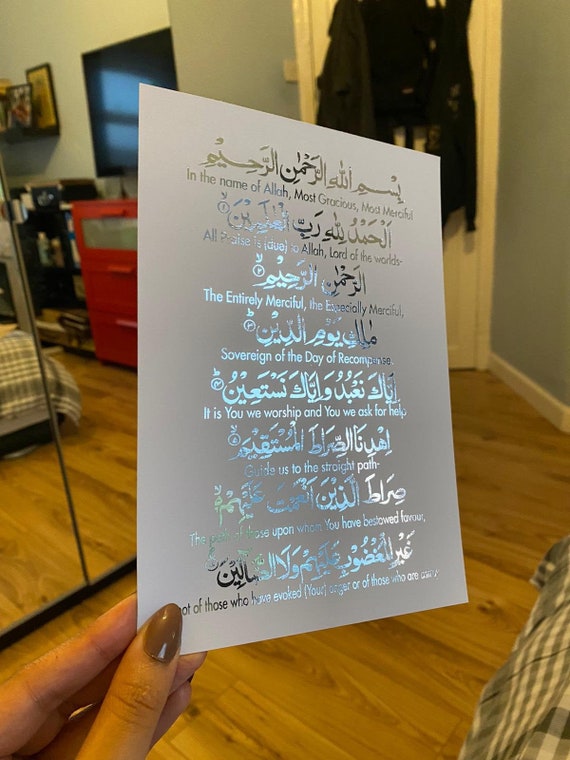 بِسْمِ اللهِ الرَّحْمٰنِ الرَّحِيْمِ
In the name of Allah, Most Gracious, Most Merciful
اَلْحَمْدُ لِلّٰهِ رَبِّ الْعٰلَمِيْنَ ۙ﴿۱﴾
All Praise is (due) to Allah, Lord of the worlds-
الرَّحْمٰنِ الرَّحِيْمِ ۙ﴿۲﴾
The Entirely Merciful, the Especially Merciful,
مٰلِكِ يَوْمِ الدِّيْنِ ؕ﴿۳﴾
Sovereign of the Day of Recompense.
اِيَّاكَ نَعْبُدُ وَاِيَّاكَ نَسْتَعِيْنُ ؕ﴿۴﴾
It is You we worship and You we ask for help
اِهْدِنَا الصِّرَاطَ الْمُسْتَقِيْمَ ۙ﴿۵﴾
Guide us to the straight path-
صِرَاطَ الَّذِيْنَ اَنْعَمْتَ عَلَيْهِمْ ۙ
The path of those upon whom You have bestowed favour,
غَيْرِ الْمَغْضُوْبِ عَلَيْهِمْ وَلَا الضَّآلِّيْنَ
not of those who have evoked (Your) anger or of those who are